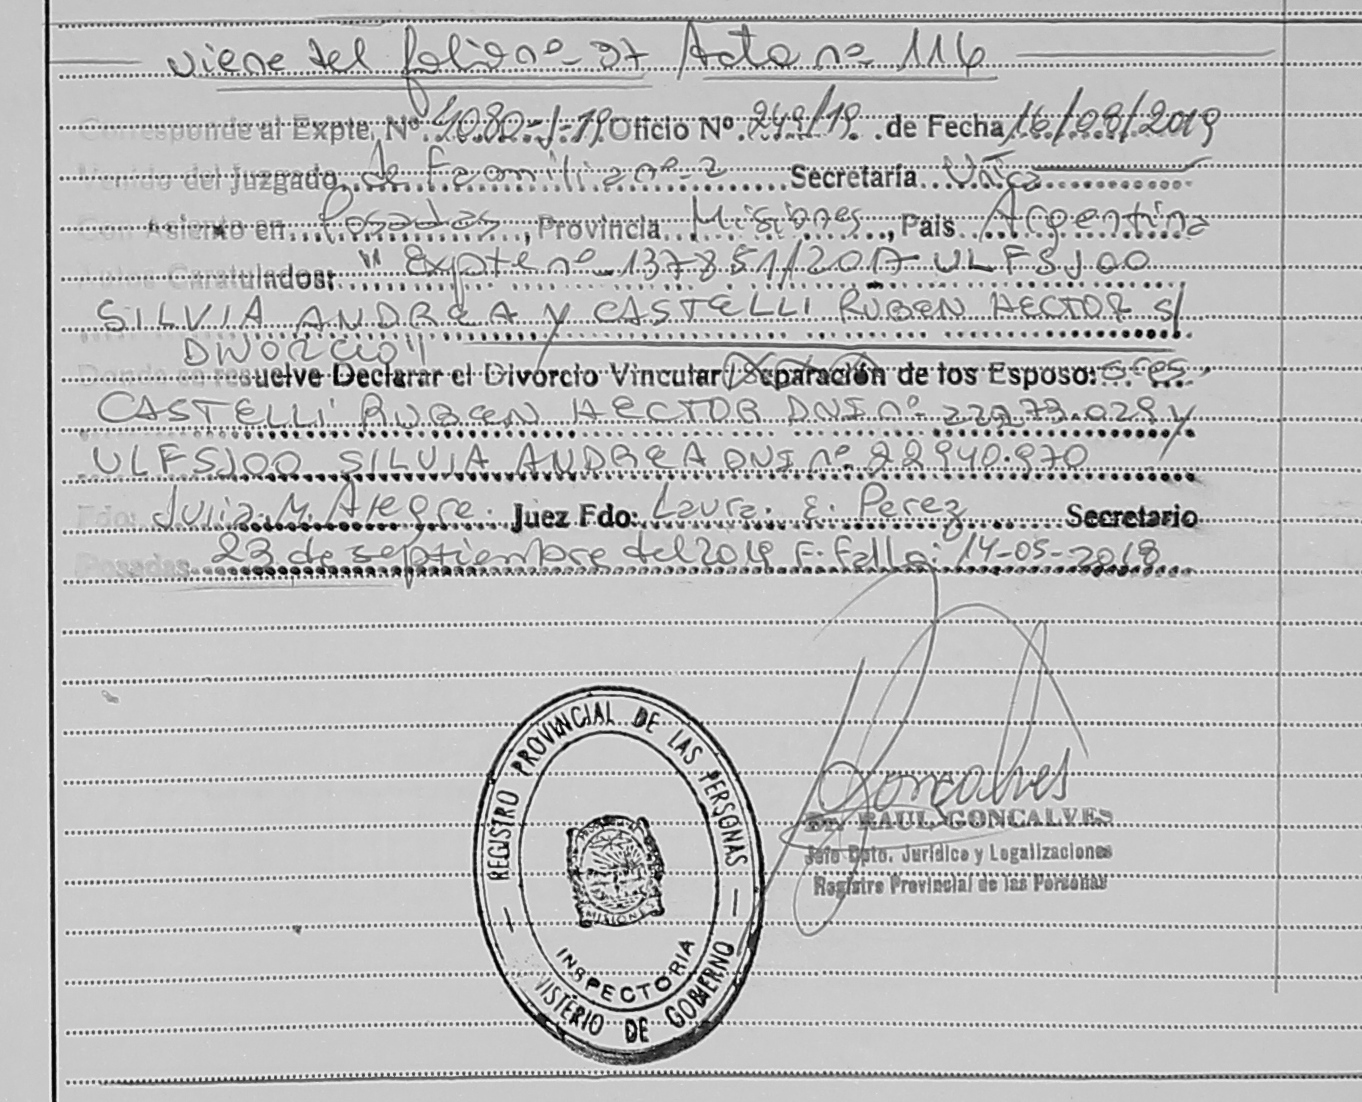 viene del folio nº 37 Acta nº 116
Corresponde al Expte. Nº 4080-J-19 Oficio Nº 249/19 de Fecha 16/08/2019
Venido del Juzgado de Familia nº 2 Secretaría Única
Con Asiento en Posadas, Provincia Misiones, Pais Argentina
Autos Caratulados: "Expte nº 137851/2017 ULFSJOO
SILVIA ANDREA y CASTELLI RUBEN HECTOR S/
DIVORCIO"
Donde se resuelve Declarar el Divorcio Vincular / Separación de los Esposo: sres.
CASTELLI RUBEN HECTOR DNI nº 22973.029 y
ULFSJOO SILVIA ANDREA DNI nº 22940.970
Fdo: Julia M. Alegre. Juez Fdo: Laura E. Perez Secretario
Posadas 23 de septiembre del 2019 F. Fallo: 14-05-2018
REGISTRO PROVINCIAL DE LAS PERSONAS
MISIONES
INSPECTORIA
NISTERIO DE GOBIERNO
Goncalves
Dr. RAUL GONCALVES
Jefe Dpto. Jurídico y Legalizaciones
Registro Provincial de las Personas